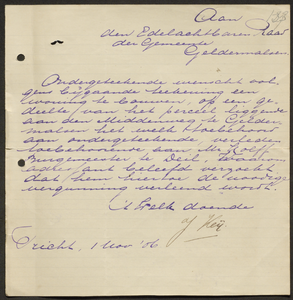 Aan
den Edelachtbaren Raad
der Gemeente
Geldermalsen
Ondergeteekende wenscht vol-
gens bijgaande teekening een
woning te bouwen, op een ge-
deelte van het perceel liggende
aan den Middenweg te Gelder-
malsen het welk toebehoord
aan ondergeteekende, verleden
toebehoorende aan Mr
Burgemeester te Deil, waarom
adres ant beleefd verzoekt
dat hem hiervoor de noodige
vergunning verleend wordt.
't Welk doende
Tricht, 1 Nov '06